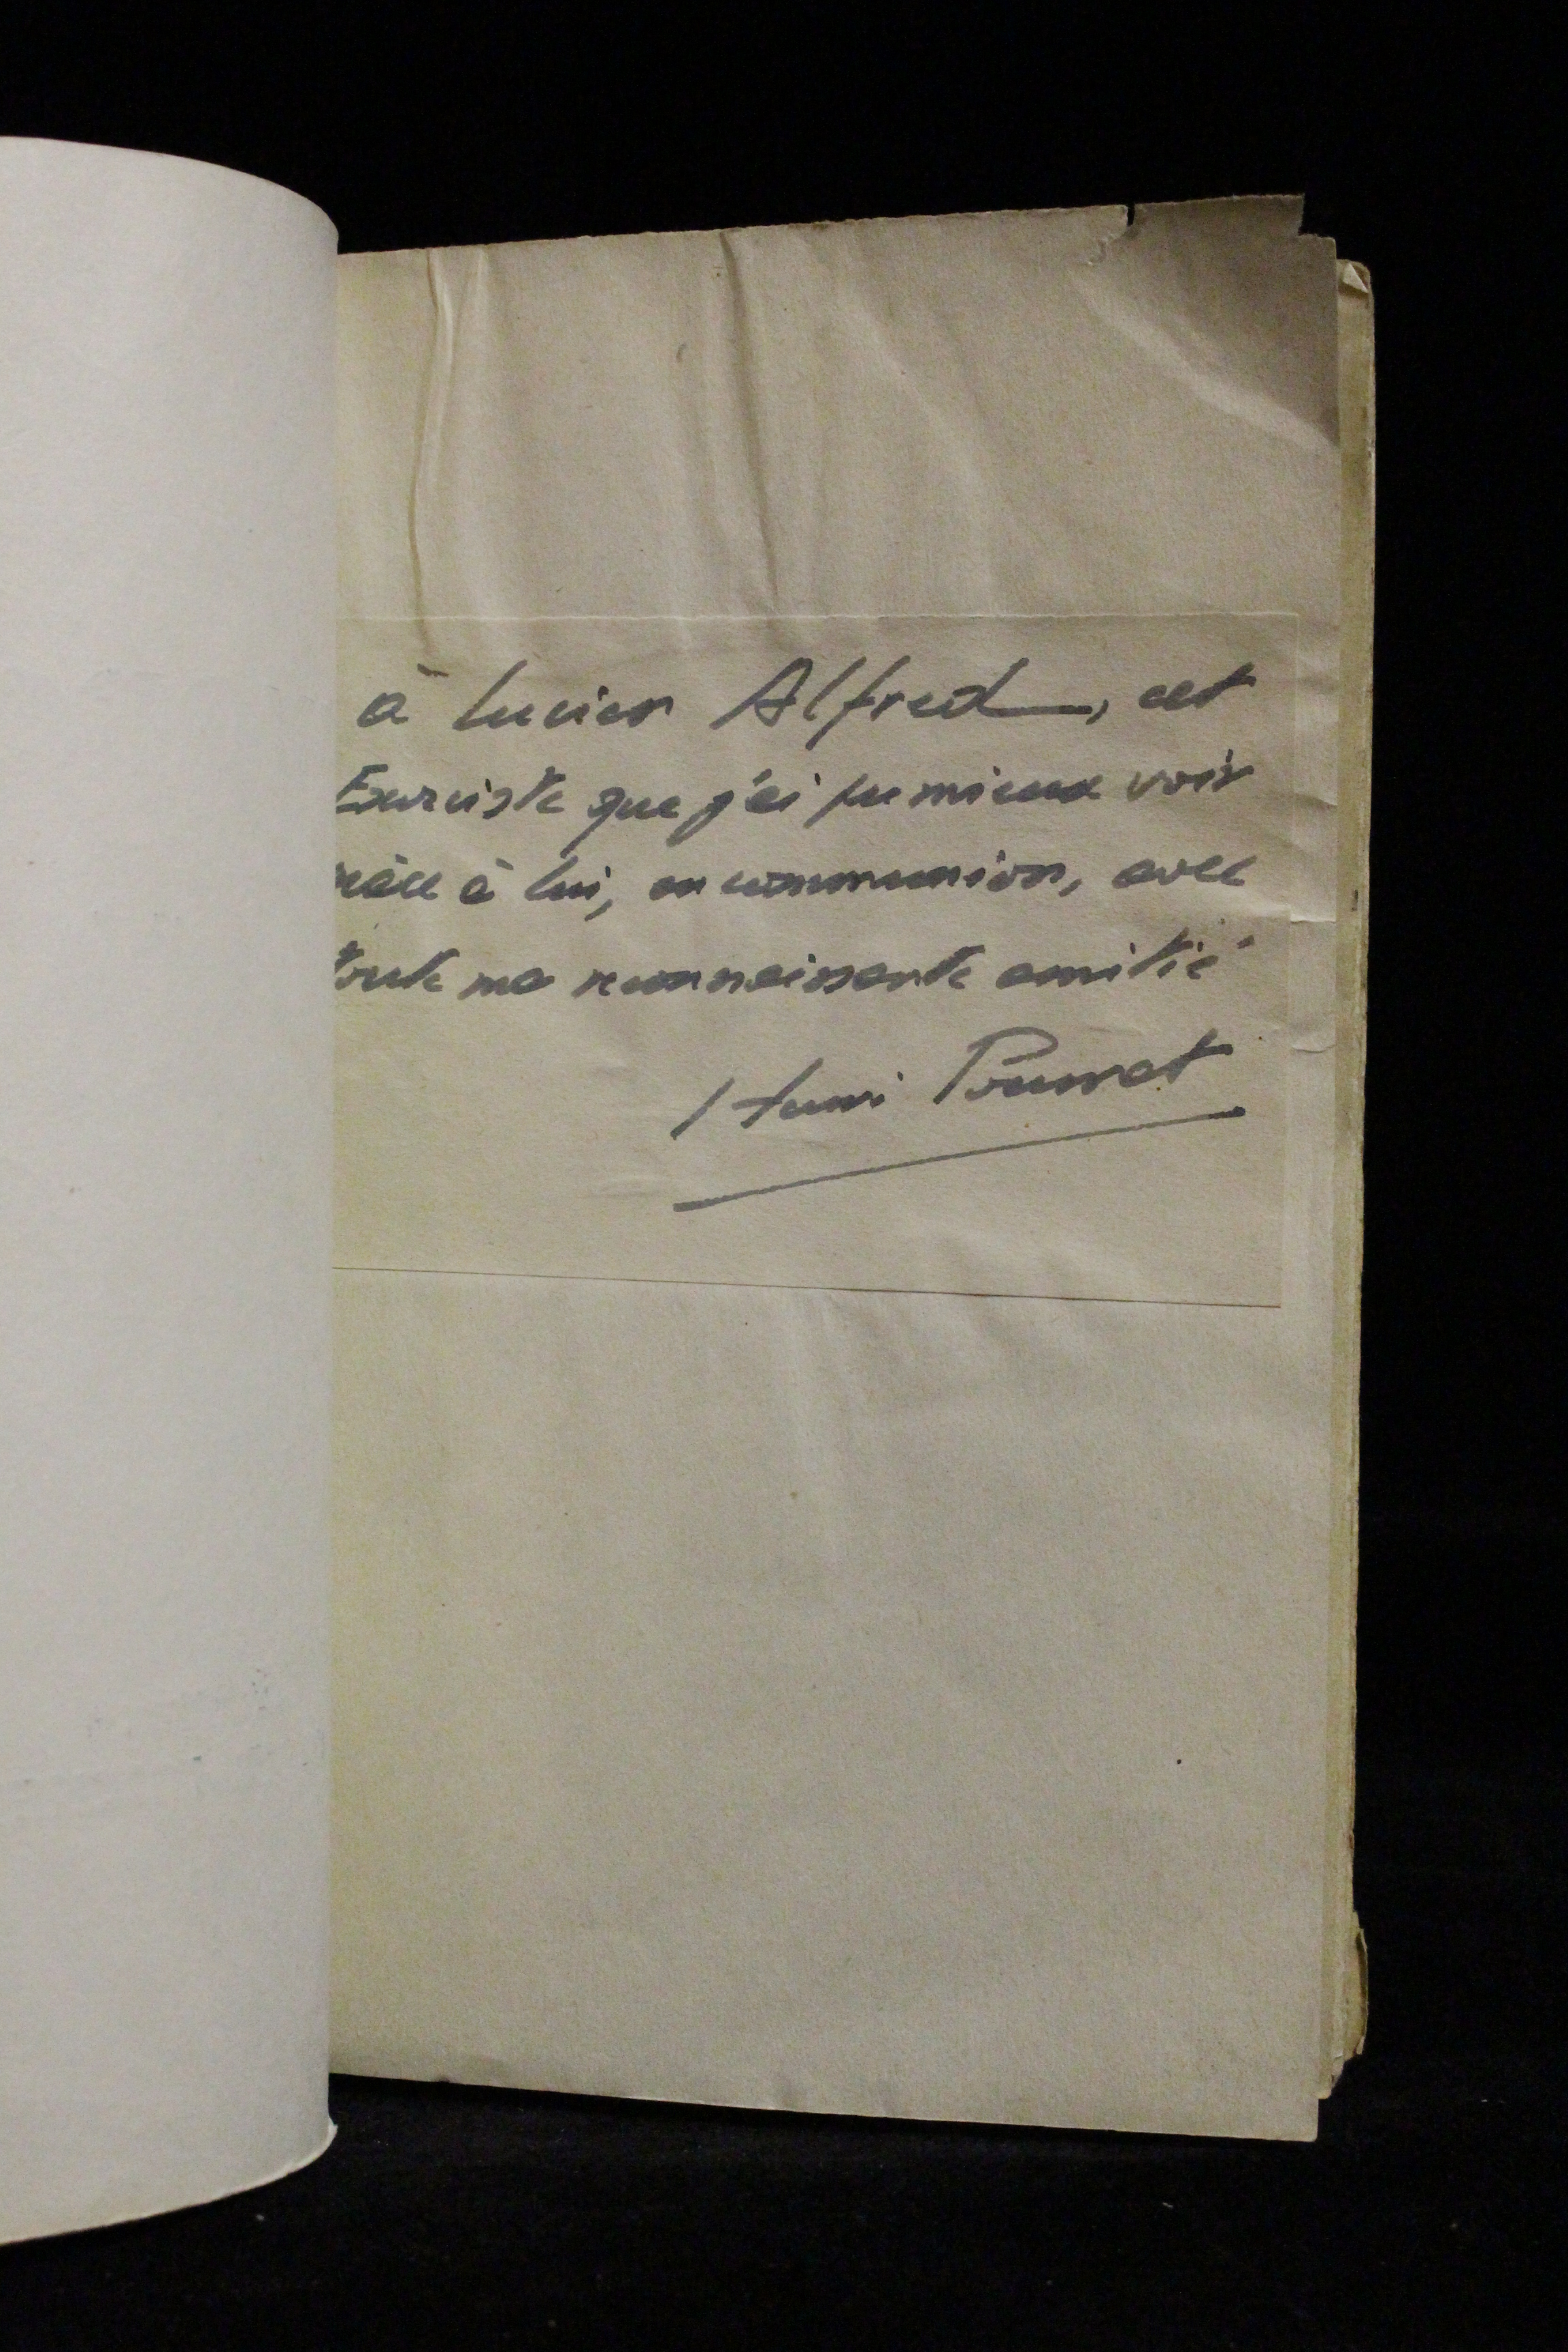 à Lucien Alfred, cet
Exorciste que j'ai pu mieux voir
râce à lui, en communion, avec
toute ma reconnaissante amitié
Henri Pourrat